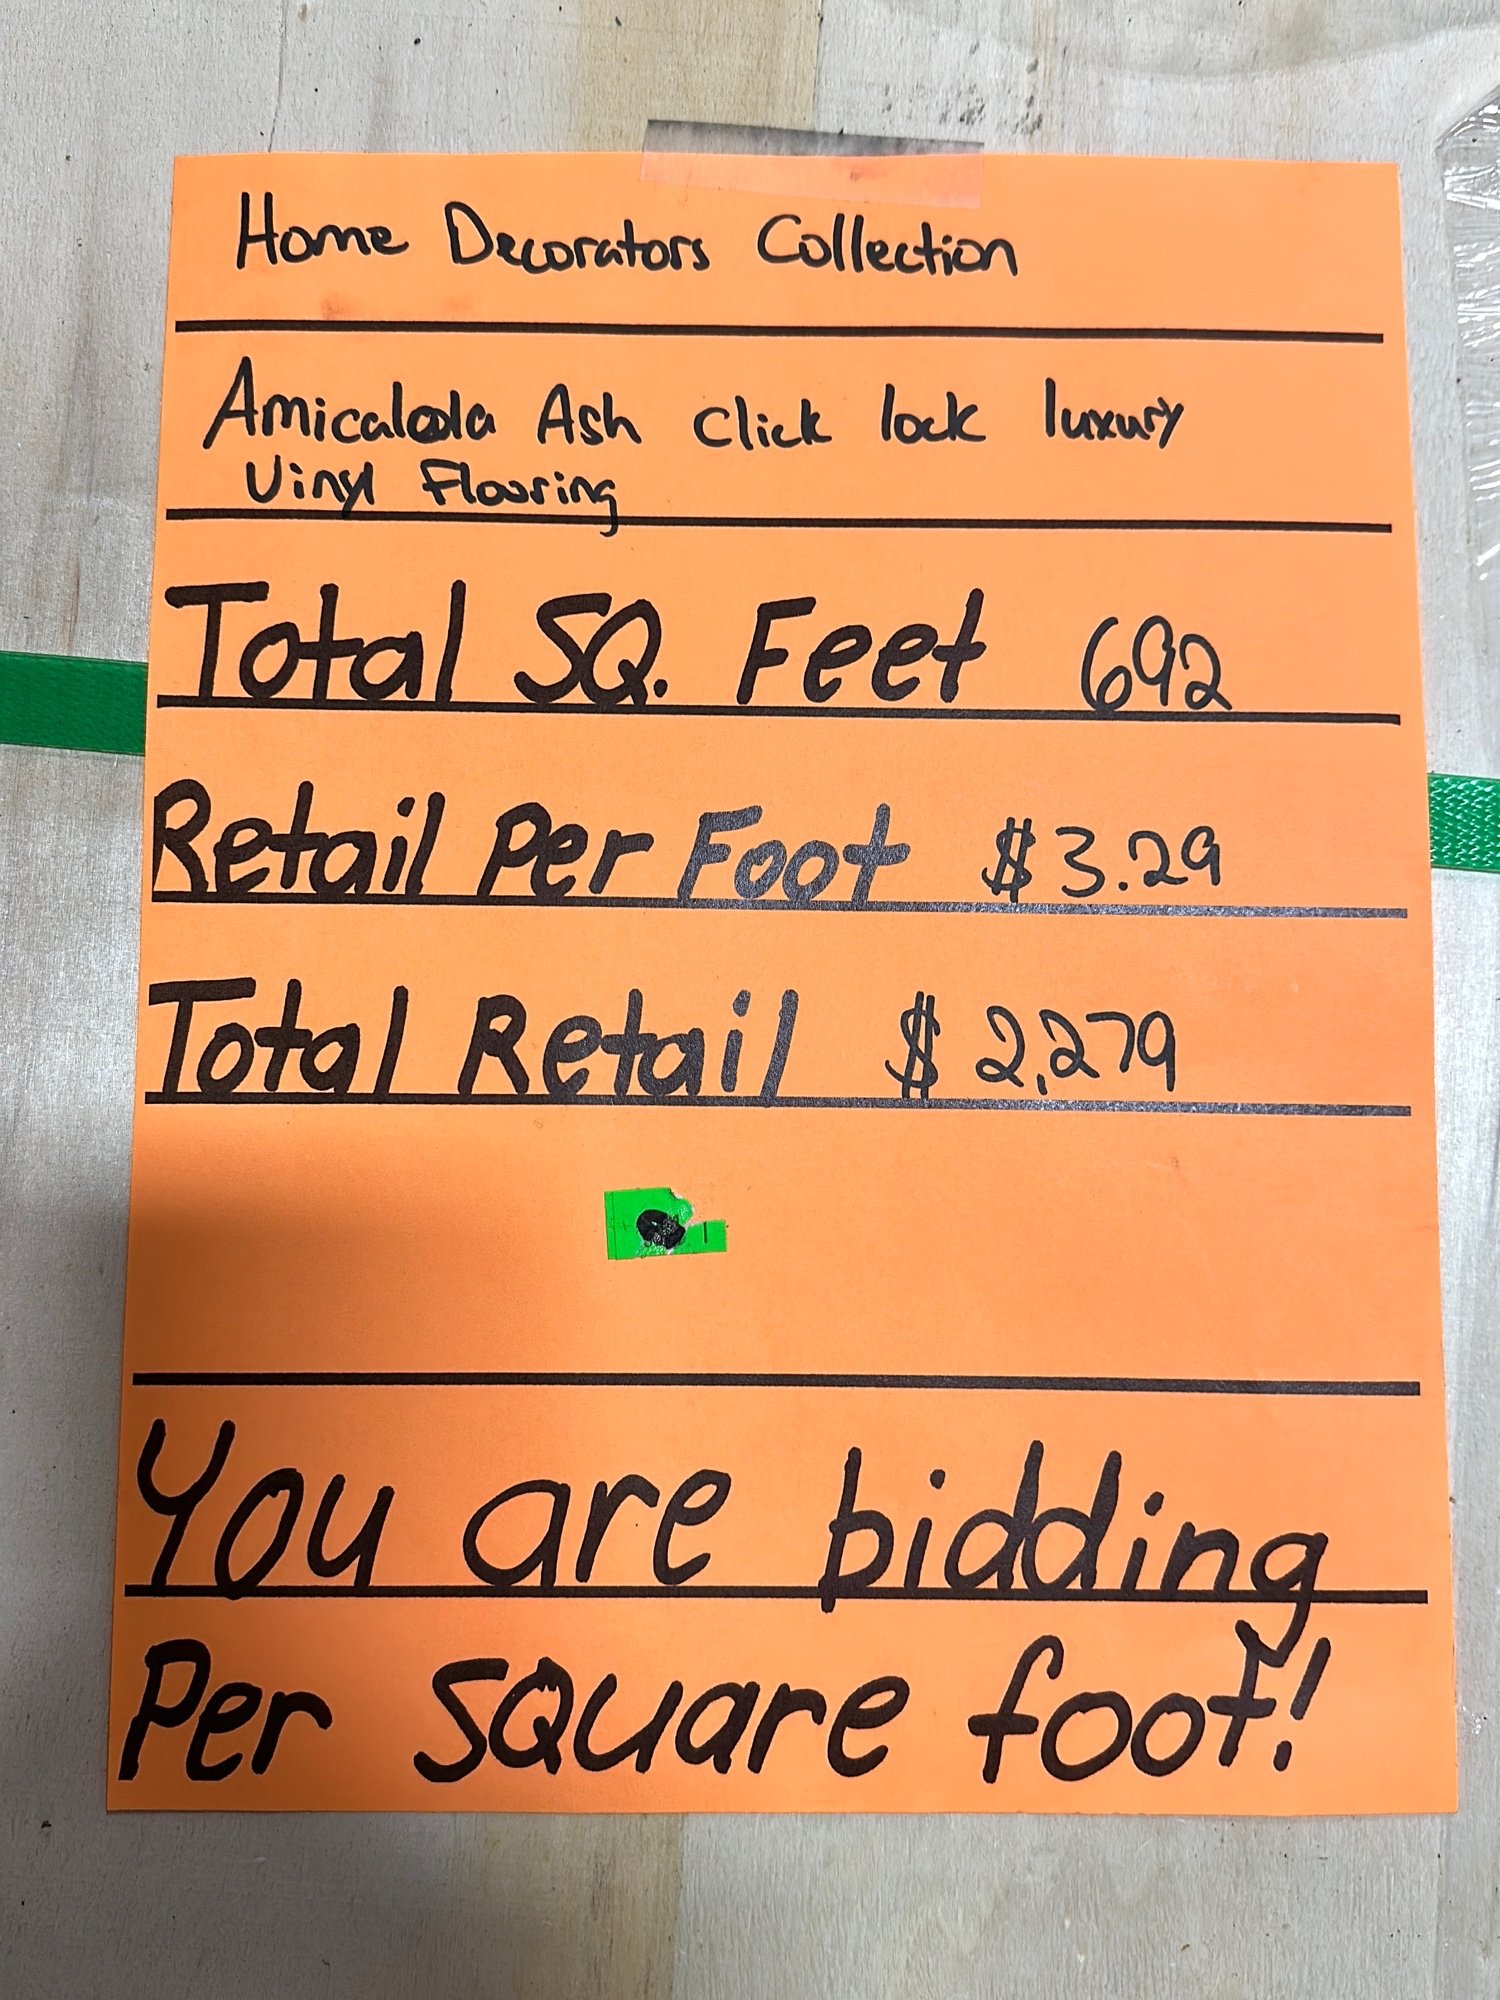 Home Decorators Collection
Amicalola Ash click lock luxury
Vinyl Flooring
Total SQ. Feet 692
Retail Per Foot $3.29
Total Retail $2,279
You are bidding
Per square foot!